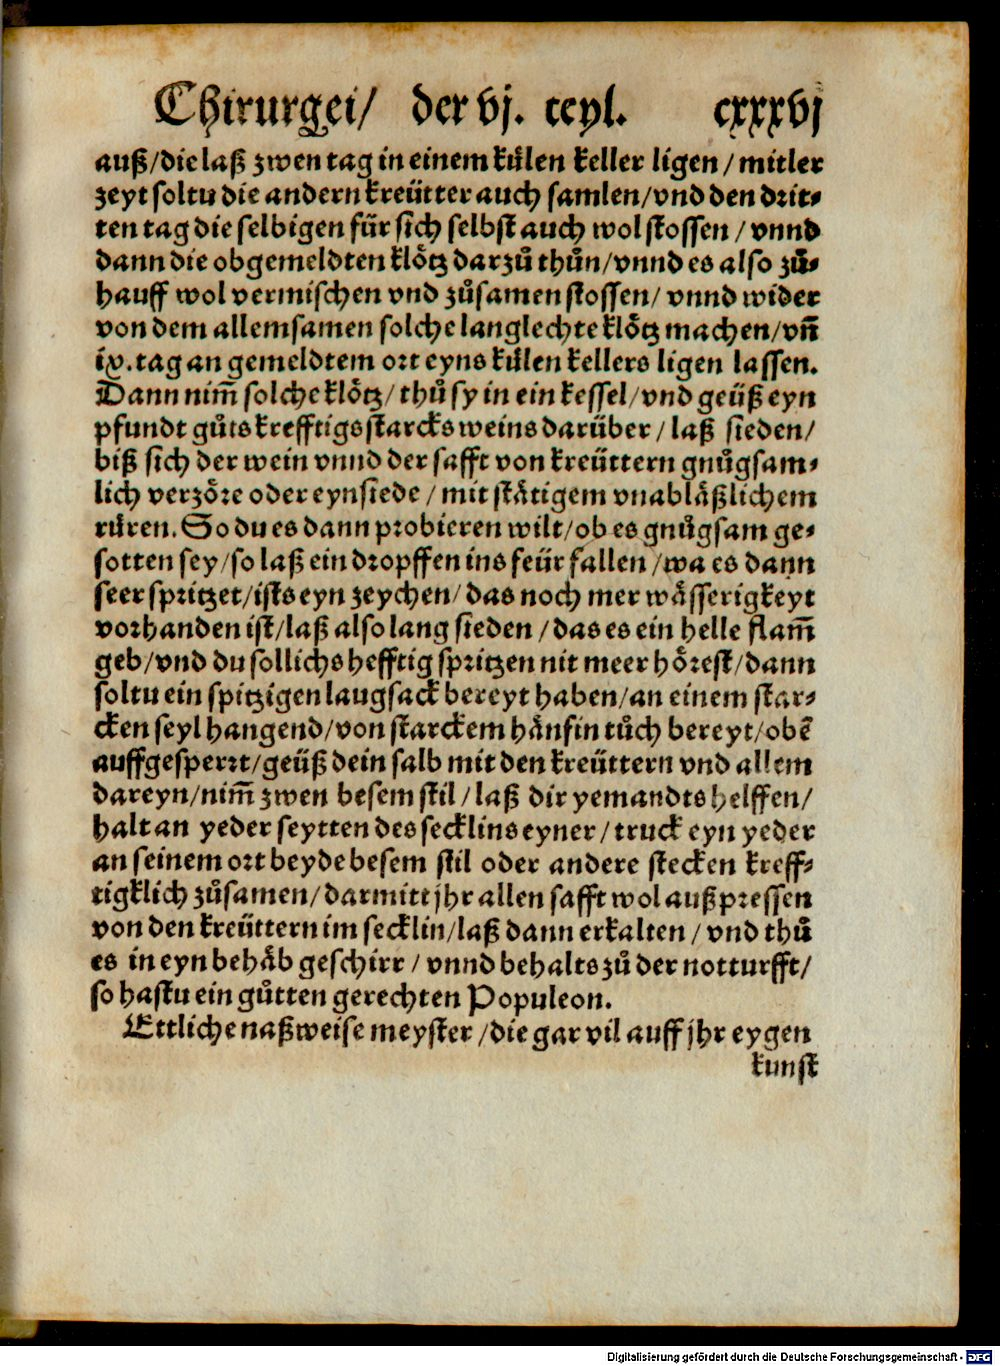 Chirurgei/ der vj. teyl. cxxxvj
auß/die laß zwen tag in einem kuͤlen keller ligen/mitler
zeyt soltu die andern kreütter auch samlen/vnd den drit⸗
ten tag die selbigen für sich selbst auch wol stossen/vnnd
dann die obgemeldten kloͤtz darzuͦ thuͦn/vnnd es also zuͦ⸗
hauff wol vermischen vnd zuͦsamen stossen/vnnd wider
von dem allemsamen solche langlechte kloͤtz machen/vñ
ix.tag an gemeldtem ort eyns kuͤlen kellers ligen lassen.
Dann nim̃ solche kloͤtz/thuͦ sy in ein kessel/vnd geüß eyn
pfundt guͦts krefftigs starcks weins darüber/laß sieden/
biß sich der wein vnnd der safft von kreüttern gnuͦgsam⸗
lich verzoͤre oder eynsiede/mit staͤtigem vnablaͤßlichem
ruͤren. So du es dann probieren wilt/ob es gnuͦgsam ge⸗
sotten sey/so laß ein dropffen ins feür fallen/wa es dann
seer spritzet/ists eyn zeychen/das noch mer waͤsserigkeyt
vorhanden ist/laß also lang sieden/das es ein helle flam̃
geb/vnd du sollichs hefftig spritzen nit meer hoͤrest/dann
soltu ein spitzigen laugsack bereyt haben/an einem star⸗
cken seyl hangend/von starckem haͤnfin tuͦch bereyt/obẽ
auffgesperrt/geüß dein salb mit den kreüttern vnd allem
dareyn/nim̃ zwen besem stil/laß dir yemandts helffen/
halt an yeder seytten des secklins eyner/truck eyn yeder
an seinem ort beyde besem stil oder andere stecken kreff⸗
tigklich zuͦsamen/darmitt jhr allen safft wol außpressen
von den kreüttern im secklin/laß dann erkalten/vnd thuͦ
es in eyn behaͤb geschirr/vnnd behalts zuͦ der notturfft/
so hastu ein guͦtten gerechten Populeon.
Ettliche naßweise meyster/die gar vil auff jhr eygen
kunst
Digitalisierung gefördert durch die Deutsche Forschungsgemeinschaft - DFG